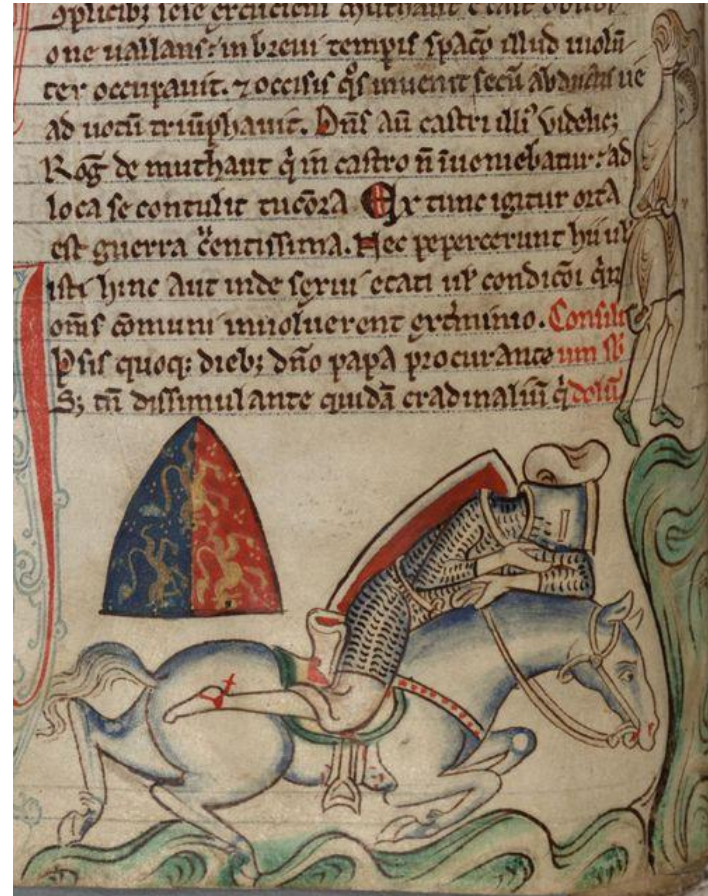 one uallans: in breui tempis spacō illud uiolē
ter occupauit. ⁊ occisis q̄s inuenit secū
ad uotū triūphauit. Dn̄s aū castri illi᷒ videlicꝫ
Roḡ de muthaut q̄ in castro n̄ īueniebatur: ad
loca se contulit tucōra Ex tunc igitur orta
est guerra c̄entissima. Nec pepercerunt hii ul̄
isti hinc aut inde sexui etati ul̄ condicōi q̄n
om̄s cōmuni inuoluerent exc̄minio. Consili
Ipsis quoqꝫ diebꝫ dn̄o papa procurante um sb
Sꝫ tn̄ dissimulante quidā cradinaliū q̄ dolū